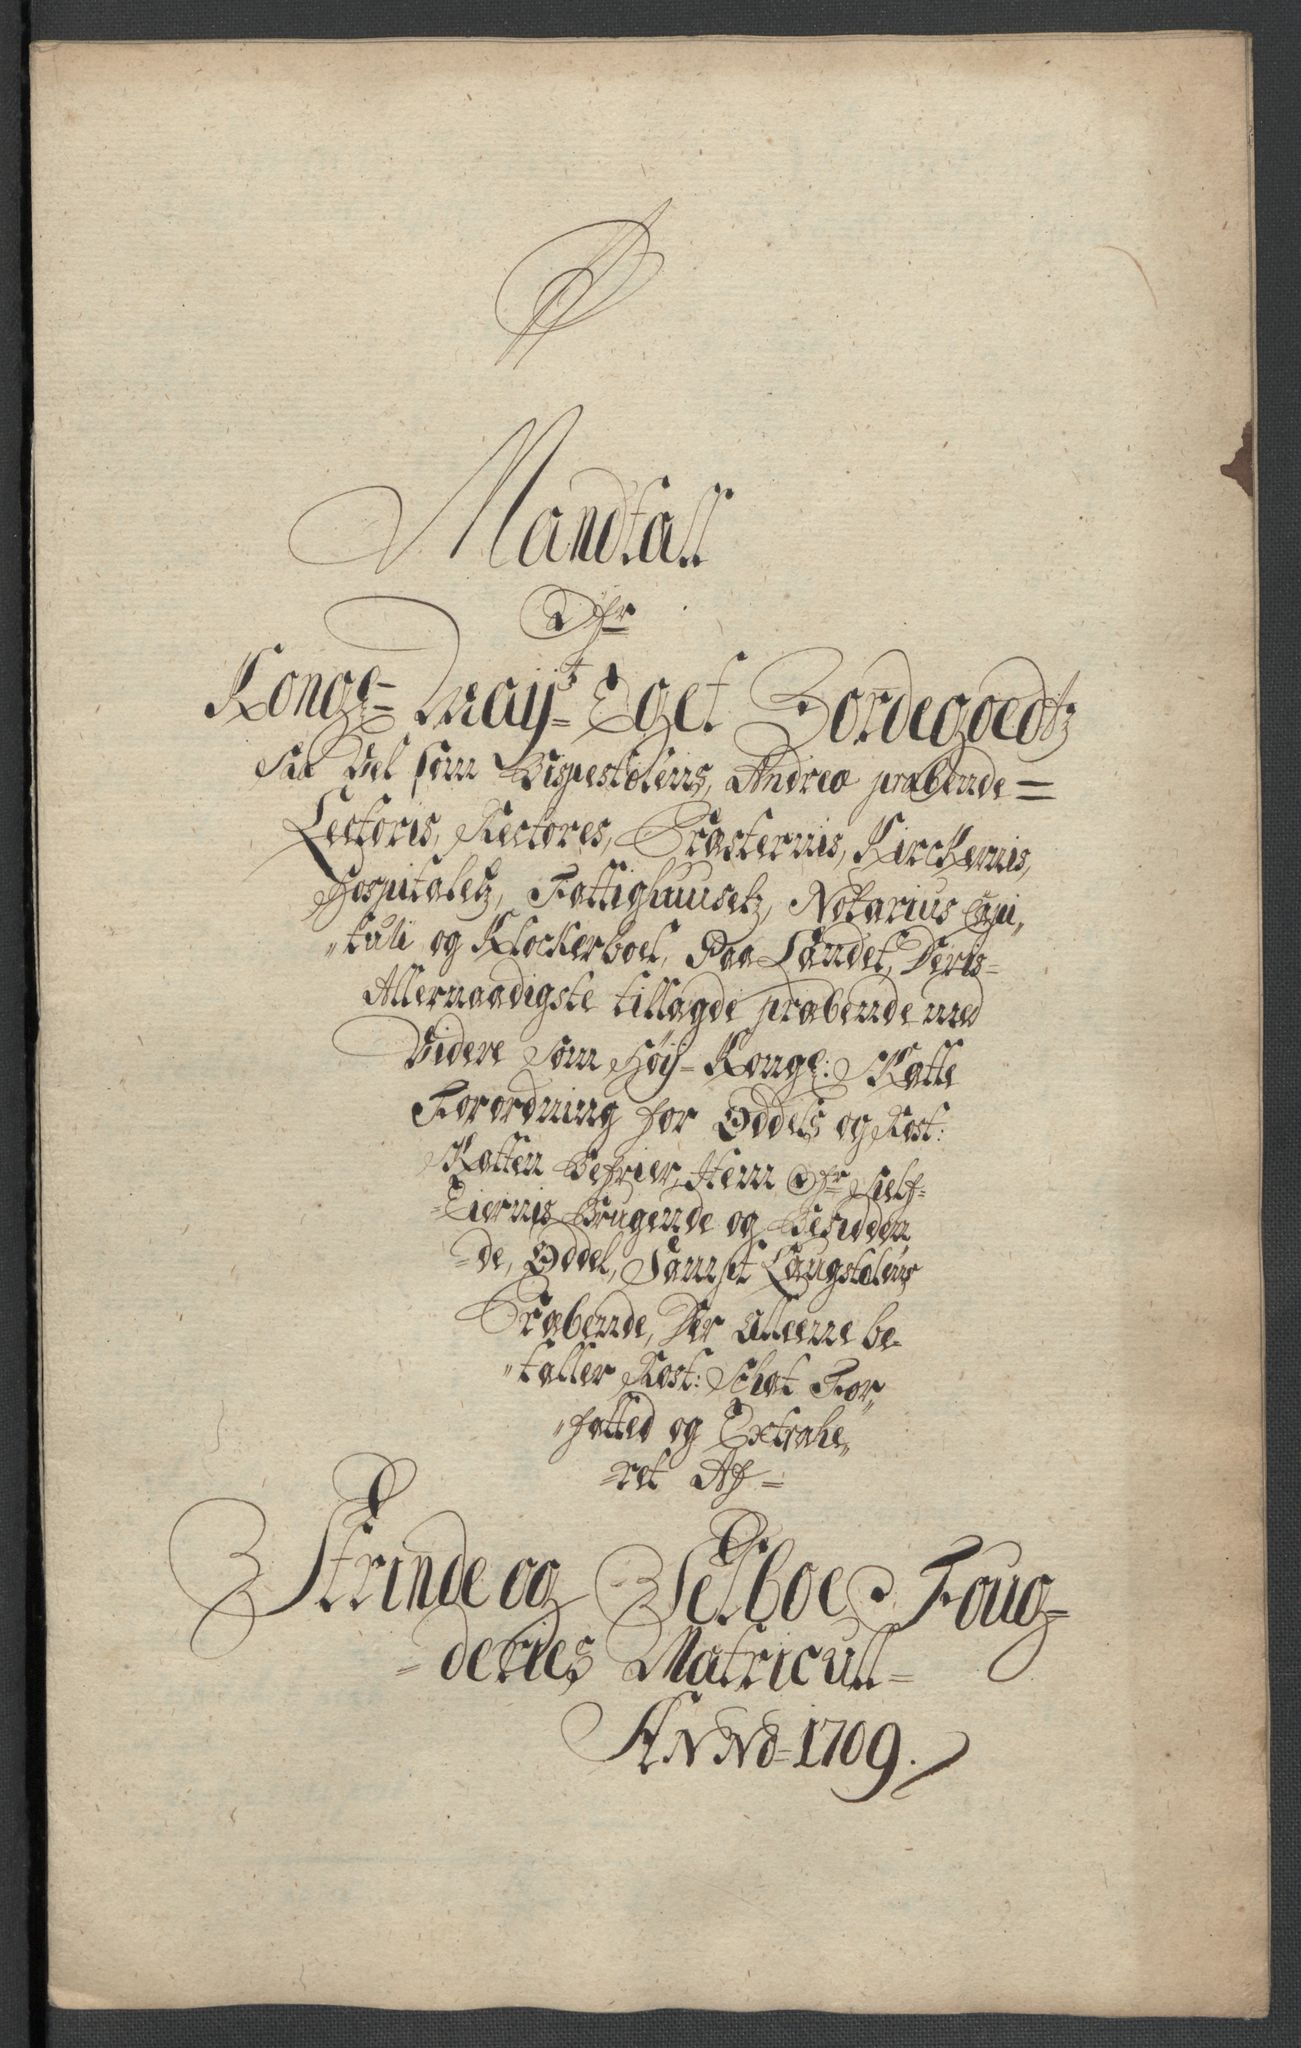 Mandtall
Ofr
Kongl= Mayts= Eget Bordegoedtz
Saa Vel som Bispestolens, Andreæ præbende=
Lectoris, Rectores, Præsternis, Kirckernis,
Hospitaletz, Fattighuusetz, Notarius Capi„
„tuli og Klockerboel, Paa Landet, Deris=
Allernaadigste tillagde præbende med
Videre Som Høy= Kongl: Skatte
Forordning for Oddels og Rost:
Skatten Befrier, Item Ofr Sielf=
=Eiernis Brugende og Besidden
=de, Oddel, Sampt Laugstolens
Præbende, Der Alleene be=
„taller Rost: Schat For„
„fatted og Extrahe„
=ret Af=
Strinde og Selboe Foug=
=deries Matricull=
Anno= 1709.